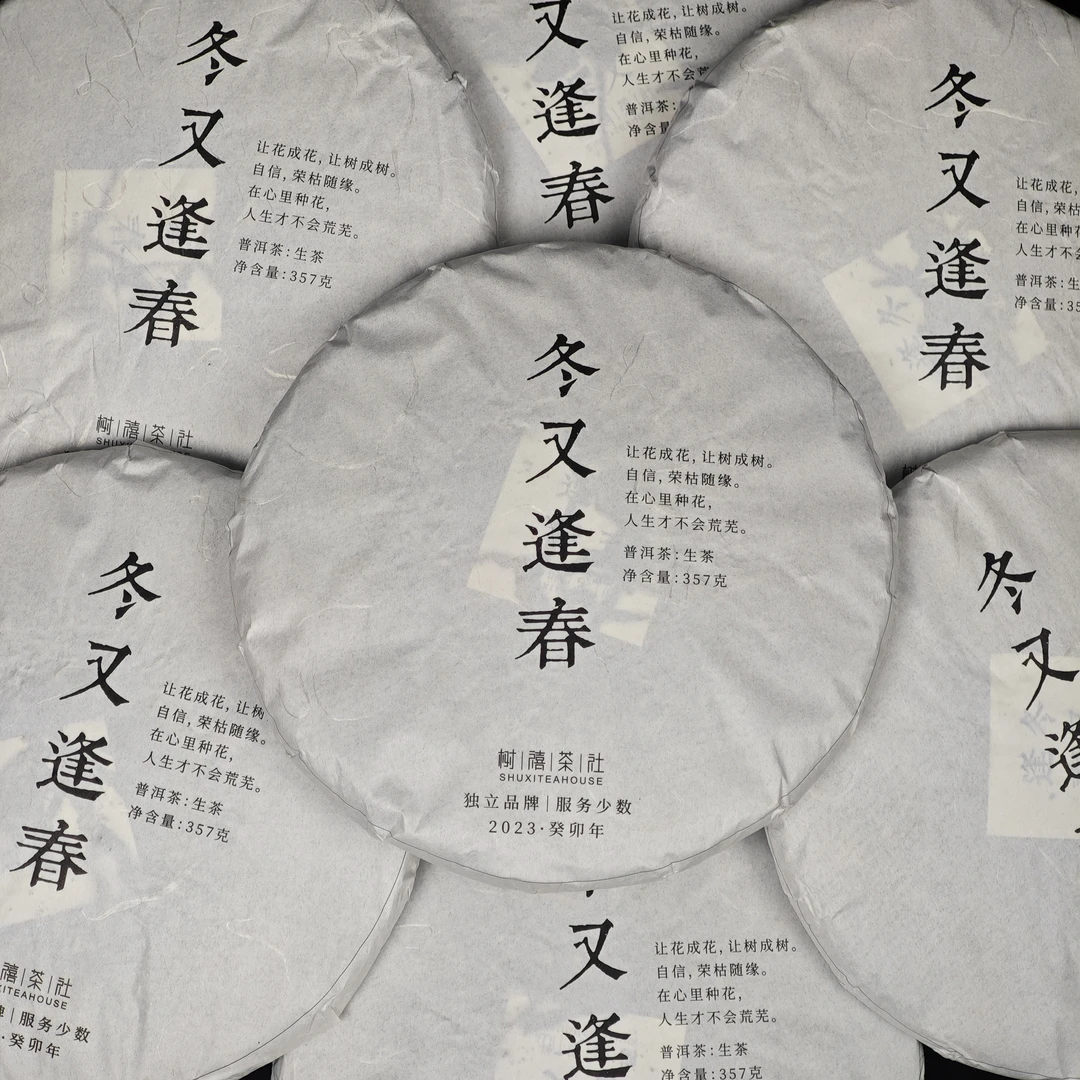 冬又逢春
让花成花，让树成树。
自信，荣枯随缘。
在心里种花，
人生才不会荒芜。
普洱茶：生茶
净含量：357克
树|禧|茶|社
又逢春
让花成花，让树成树。
自信，荣枯随缘。
在心里种花，
人生才不会荒
普洱茶：
净含量
冬又逢春
让花成花，
自信，荣枯
在心里种花
人生才不会
普洱茶：生
净含量：35
冬又逢春
让花成花，让树成树。
自信，荣枯随缘。
在心里种花，
人生才不会荒芜。
普洱茶：生茶
净含量：357克
树|禧|茶|社
SHUXITEAHOUSE
独立品牌|服务少数
2023·癸卯年
冬又逢春
让花成花，让树
自信，荣枯随缘。
在心里种花，
人生才不会荒芜。
普洱茶：生茶
净含量：357克
禧|茶|社
XITEAHOUSE
牌|服务少数
·癸卯年
冬又逢
又逢
让花成花，让树成树。
自信，荣枯随缘。
在心里种花，
人生才不会荒芜。
普洱茶：生茶
净含量：357克